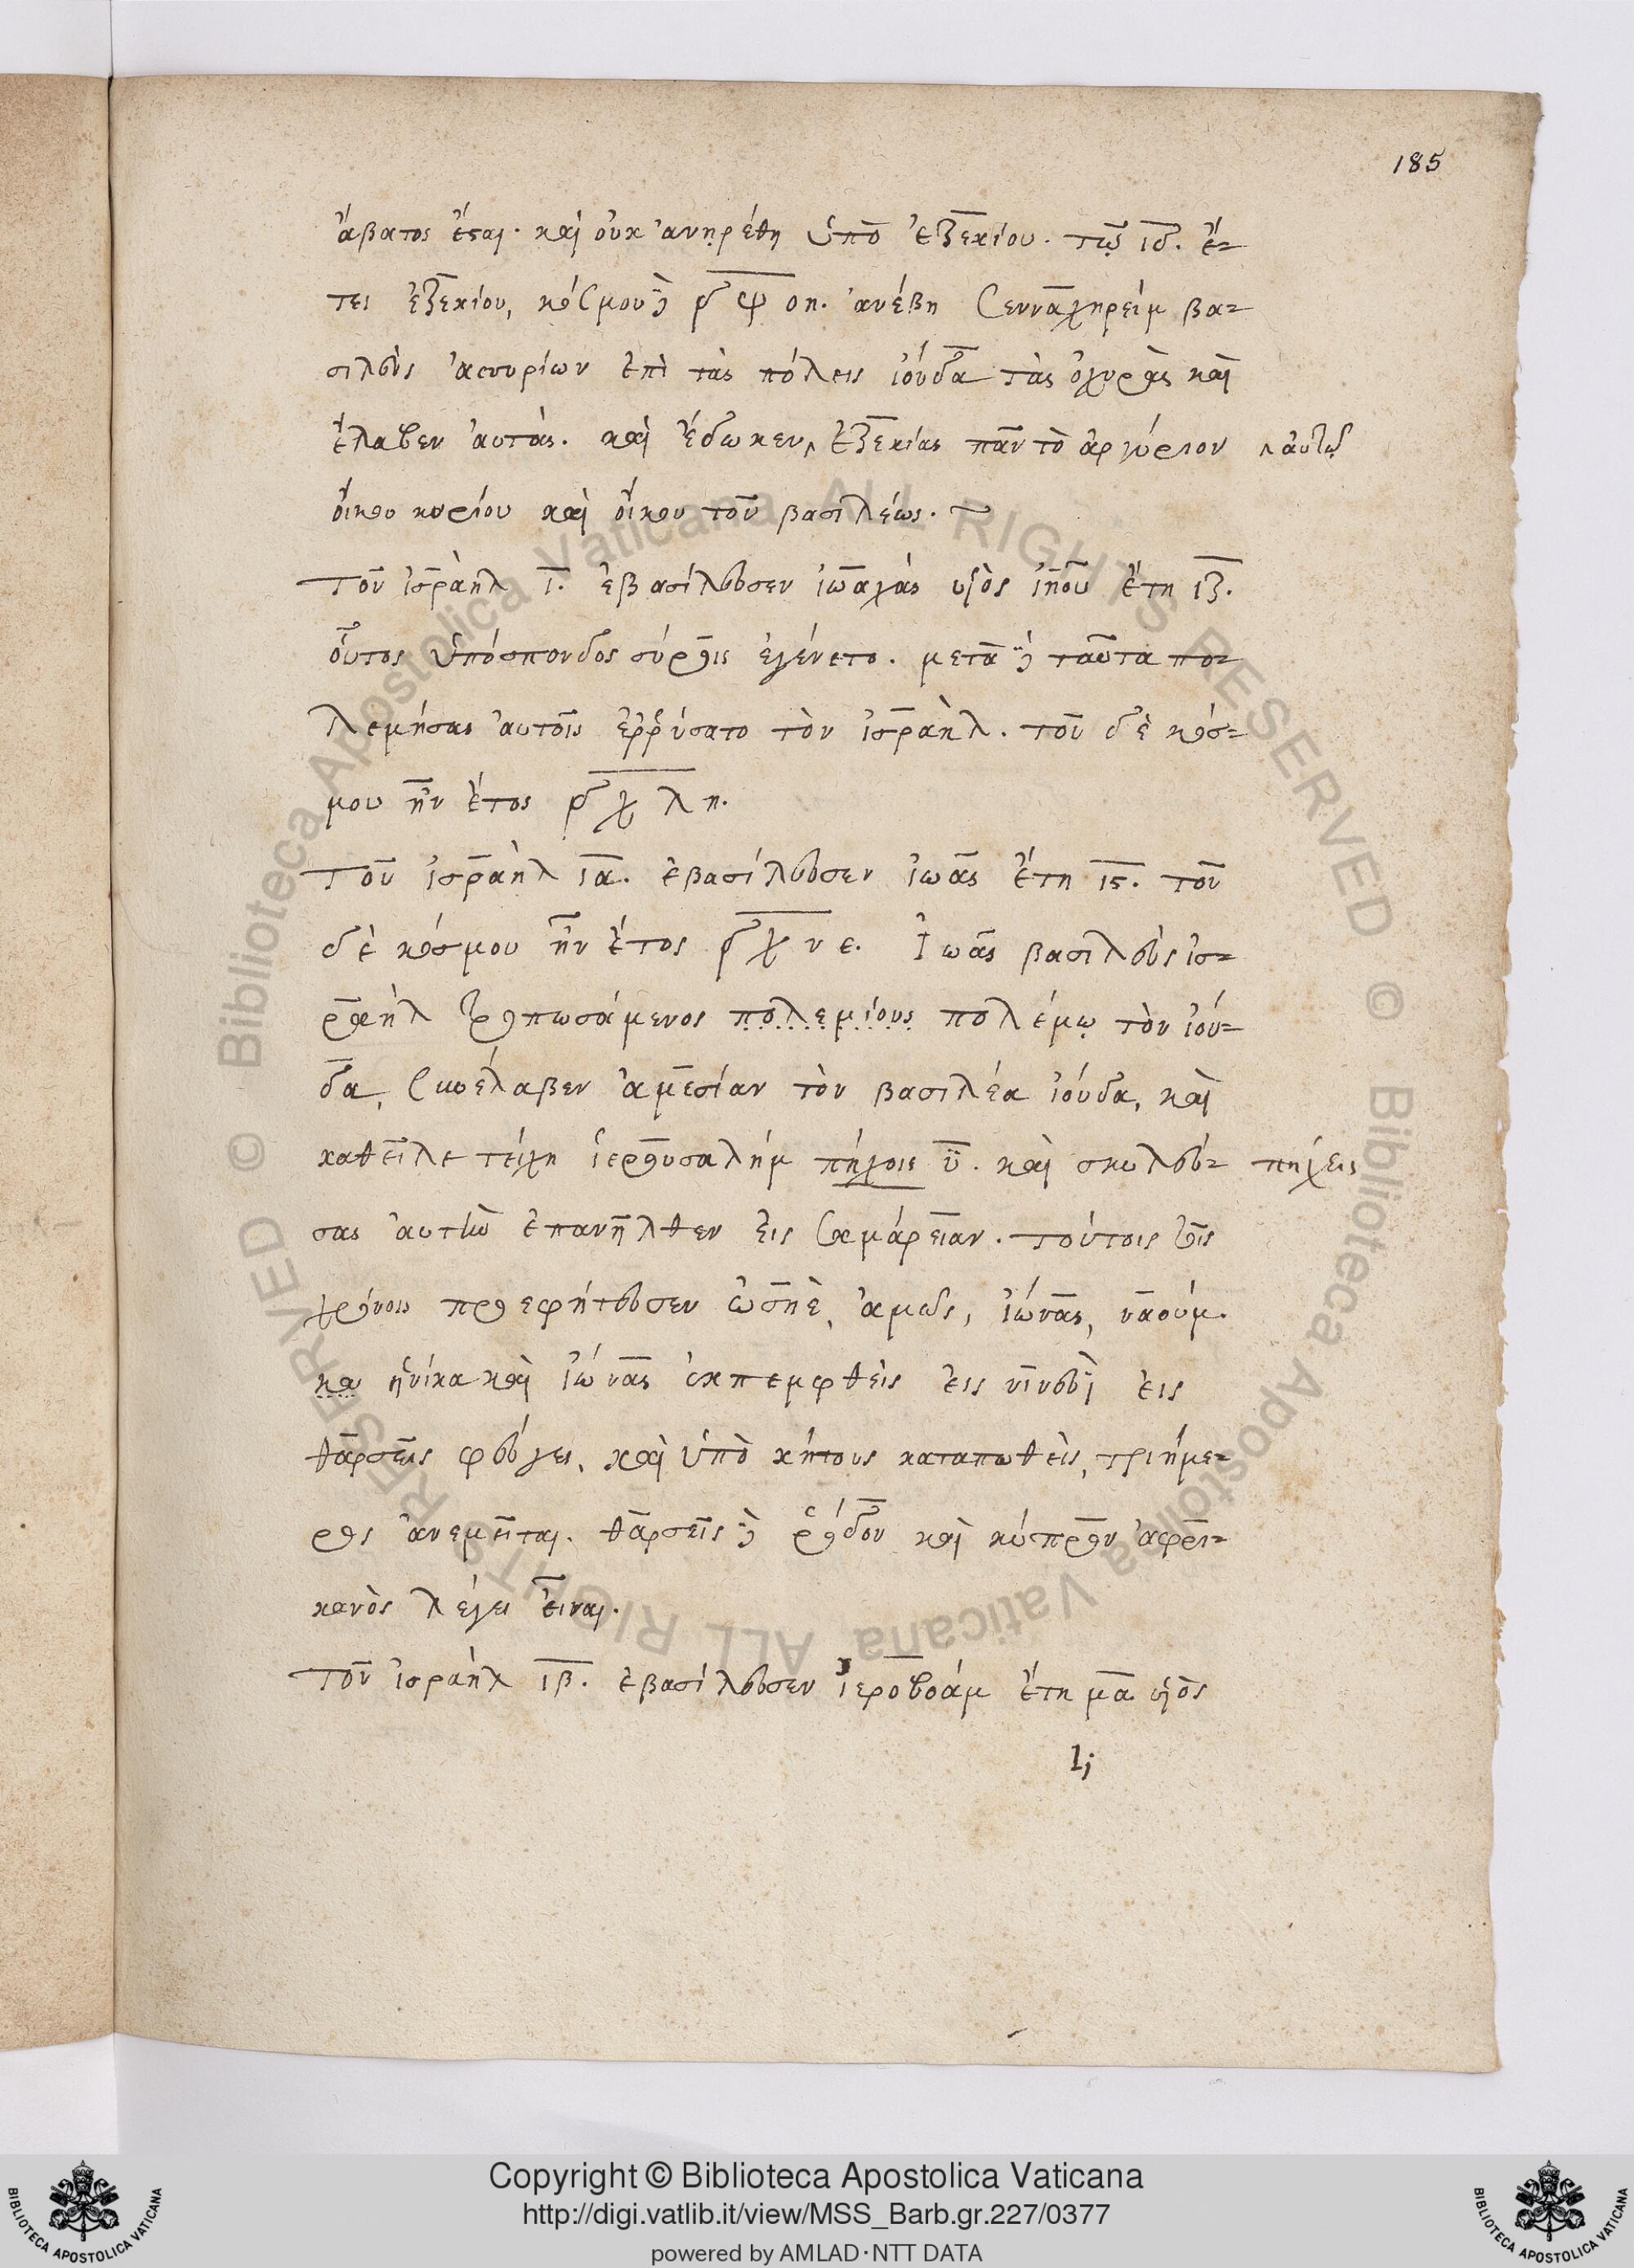 185
ἄβατος ἔσται. καὶ οὐκ ἀνῃρέθη ὑπὸ ἐζεκίου. τῷ ιδ. ἔ-
τει ἐζεκίου, κόσμου δὲ ͵δψοη. ἀνέβη Σενναχηρεὶμ βα-
σιλεὺς ἀσσυρίων ἐπὶ τὰς πόλεις ἰούδα τὰς ὀχυρὰς καὶ
ἔλαβεν αὐτάς. καὶ ἔδωκεν ‸ ἐζεκίας πᾶν τὸ ἀργύριον ‸ αὐτῷ
οἴκου κυρίου καὶ οἴκου τοῦ βασιλέως.
Τοῦ ἰσραὴλ ι. ἐβασίλευσεν ἰωαχὰς υἱὸς ἰηοῦ ἔτη ιζ.
οὗτος ὑπόσπονδος σύροις ἐγένετο. μετὰ δὲ ταῦτα πο-
λεμήσας αὐτοῖς ἐρρύσατο τὸν ἰσραὴλ. τοῦ δὲ κόσ-
μου ἦν ἔτος ͵δχλη.
Τοῦ ἰσραὴλ ια. ἐβασίλευσεν ἰωὰς ἔτη ις. τοῦ
δὲ κόσμου ἦν ἔτος ͵δχνε. Ἰωὰς βασιλεὺς ἰσ-
ραὴλ τροπωσάμενος πολεμίους πολέμῳ τὸν ἰού-
δα, συνέλαβεν ἀμεσίαν τὸν βασιλέα ἰούδα, καὶ
καθεῖλε τείχη ἱερουσαλήμ πήχοις υ. καὶ σκυλεύ- πήχεις
σας αὐτὴν ἐπανῆλθεν εἰς Σαμάρειαν. τούτοις τοῖς
χρόνοις προεφήτευσεν ὠσηὲ, ἀμὼς, ἰώνας, ναούμ.
και ἡνίκα καὶ ἰώνας ἐκπεμφθεὶς εἰς νινευὶ εἰς
θαρσεῖς φεύγει, καὶ ὑπὸ κήτους καταποθεὶς, τριήμε-
ρος ἀνεμεῖται. θαρσεῖς δὲ ῥόδον καὶ κύπρον ἀφρι-
κανὸς λέγει εἶναι.
Τοῦ ἰσραὴλ ιβ. ἐβασίλευσεν ἱεροβοάμ ἔτη μα υἱὸς
Copyright © Biblioteca Apostolica Vaticana
http://digi.vatlib.it/view/MSS_Barb.gr.227/0377
powered by AMLAD·NTT DATA